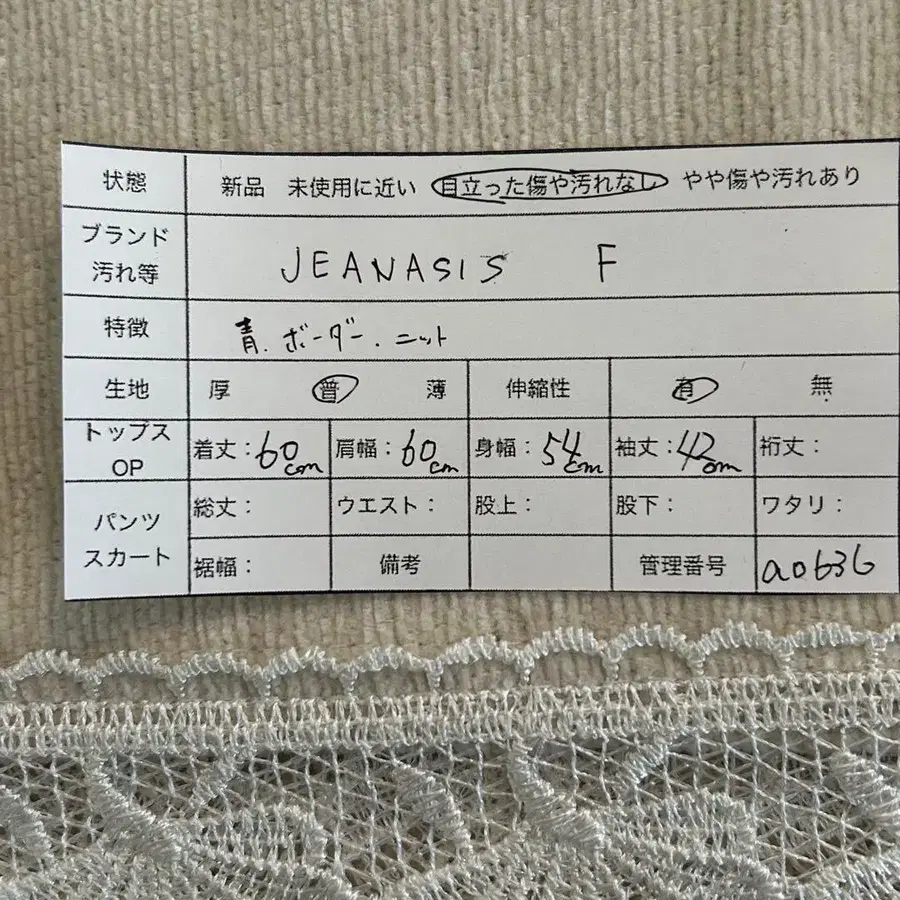 状態 新品 未使用に近い 目立った傷や汚れなし やや傷や汚れあり
ブランド
汚れ等 JEANASIS F
特徴 青.ボーダー.ニット
生地 厚 普 薄 伸縮性 有 無
トップス
OP 着丈:60cm 肩幅:60cm 身幅:54cm 袖丈:42cm 裄丈:
パンツ
スカート 総丈: ウエスト: 股上: 股下: ワタリ:
裾幅: 備考 管理番号 a0636